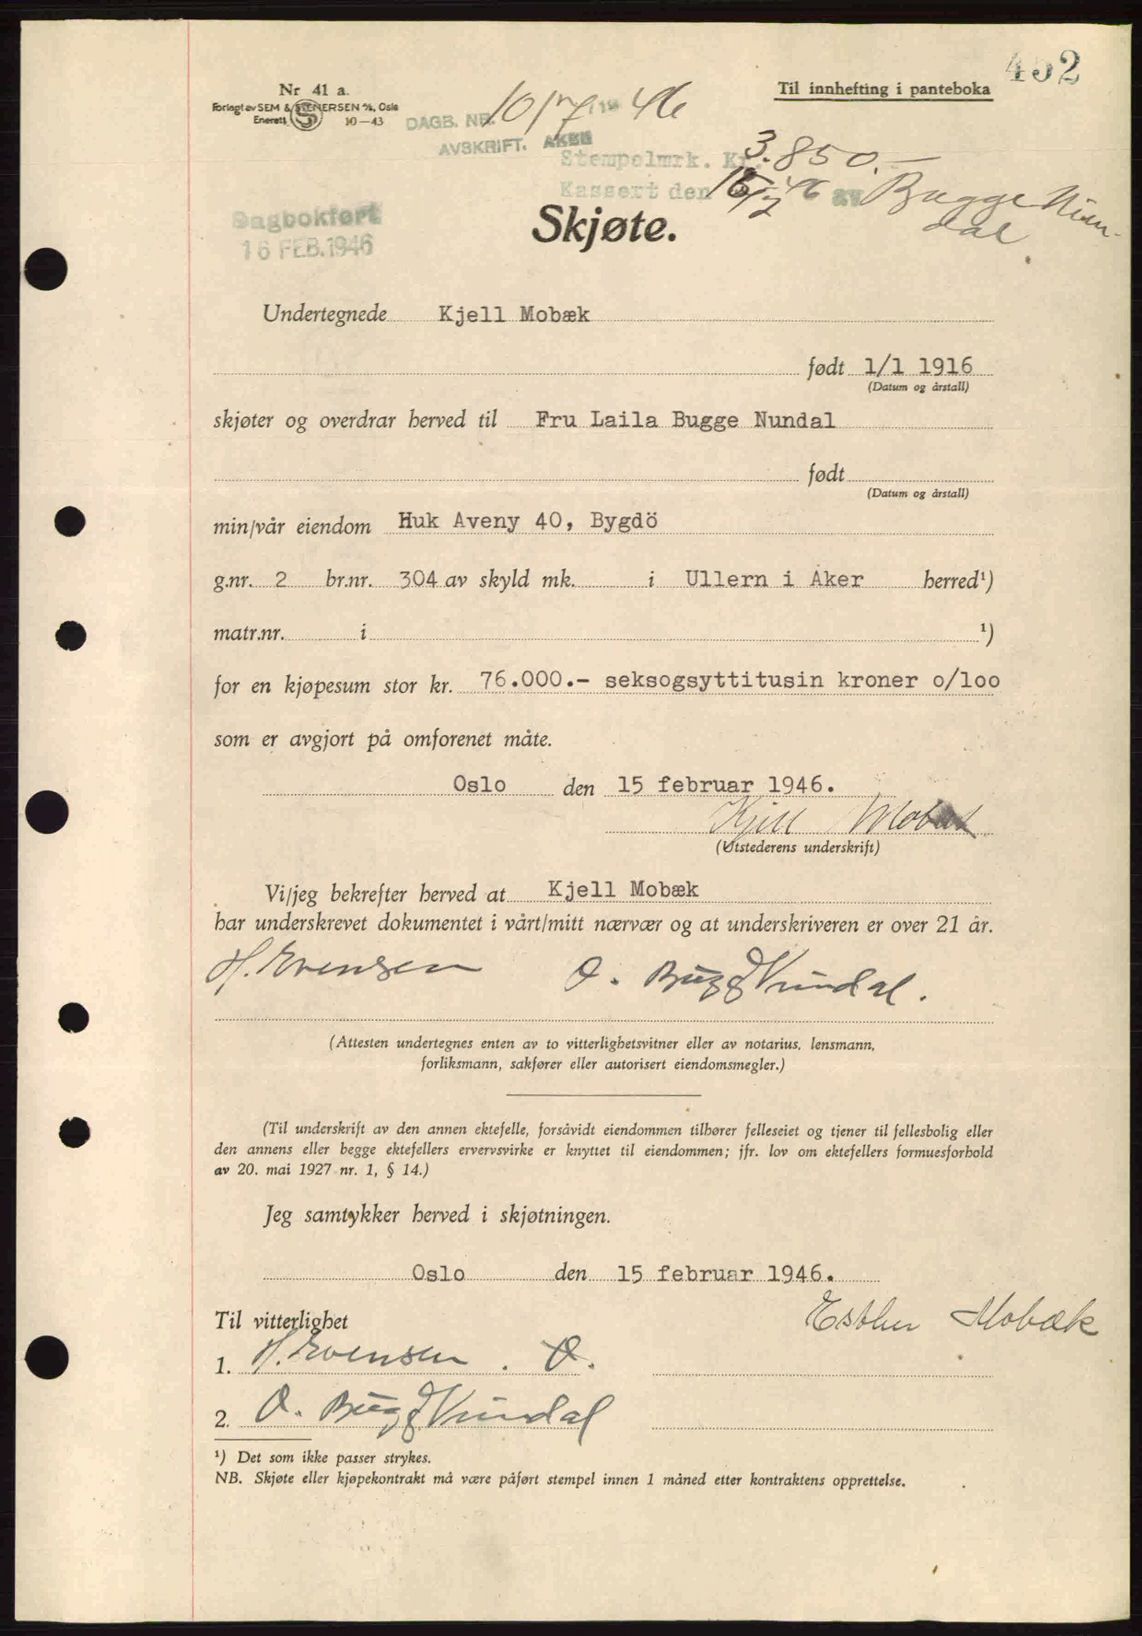 452
Nr 41 a.
Forlagt av SEM & STENERSEN A/S, Oslo
Enerett 10—43
Til innhefting i panteboka
DAGB. NR. 1017/1946
AVSKRIFT. AKER
Stempelmrk. Kr. 3.850.-
Kassert den 15/2 46 av Bugge Nun-
dal
Dagbokført
16 FEB. 1946
Skjøte.
Undertegnede Kjell Mobæk
født 1/1 1916
(Datum og årstall)
skjøter og overdrar herved til Fru Laila Bugge Nundal
født
(Datum og årstall)
min/vår eiendom Huk Aveny 40, Bygdö
g.nr. 2 br.nr. 304 av skyld mk. i Ullern i Aker herred¹)
matr.nr. i ¹)
for en kjøpesum stor kr. 76.000.- seksogsyttitusin kroner o/loo
som er avgjort på omforenet måte.
Oslo den 15 februar 1946.
Kjell Mobæk
(Utstederens underskrift)
Vi/jeg bekrefter herved at Kjell Mobæk
har underskrevet dokumentet i vårt/mitt nærvær og at underskriveren er over 21 år.
H. Evensen O. Bugge Nundal.
(Attesten undertegnes enten av to vitterlighetsvitner eller av notarius, lensmann,
forliksmann, sakfører eller autorisert eiendomsmegler.)
(Til underskrift av den annen ektefelle, forsåvidt eiendommen tilhører felleseiet og tjener til fellesbolig eller
den annens eller begge ektefellers ervervsvirke er knyttet til eiendommen; jfr. lov om ektefellers formuesforhold
av 20. mai 1927 nr. 1, § 14.)
Jeg samtykker herved i skjøtningen.
Oslo den 15 februar 1946.
Til vitterlighet
Esther Mobæk
1. H. Evensen . O.
2. O. Bugge Nundal
¹) Det som ikke passer strykes.
NB. Skjøte eller kjøpekontrakt må være påført stempel innen 1 måned etter kontraktens opprettelse.